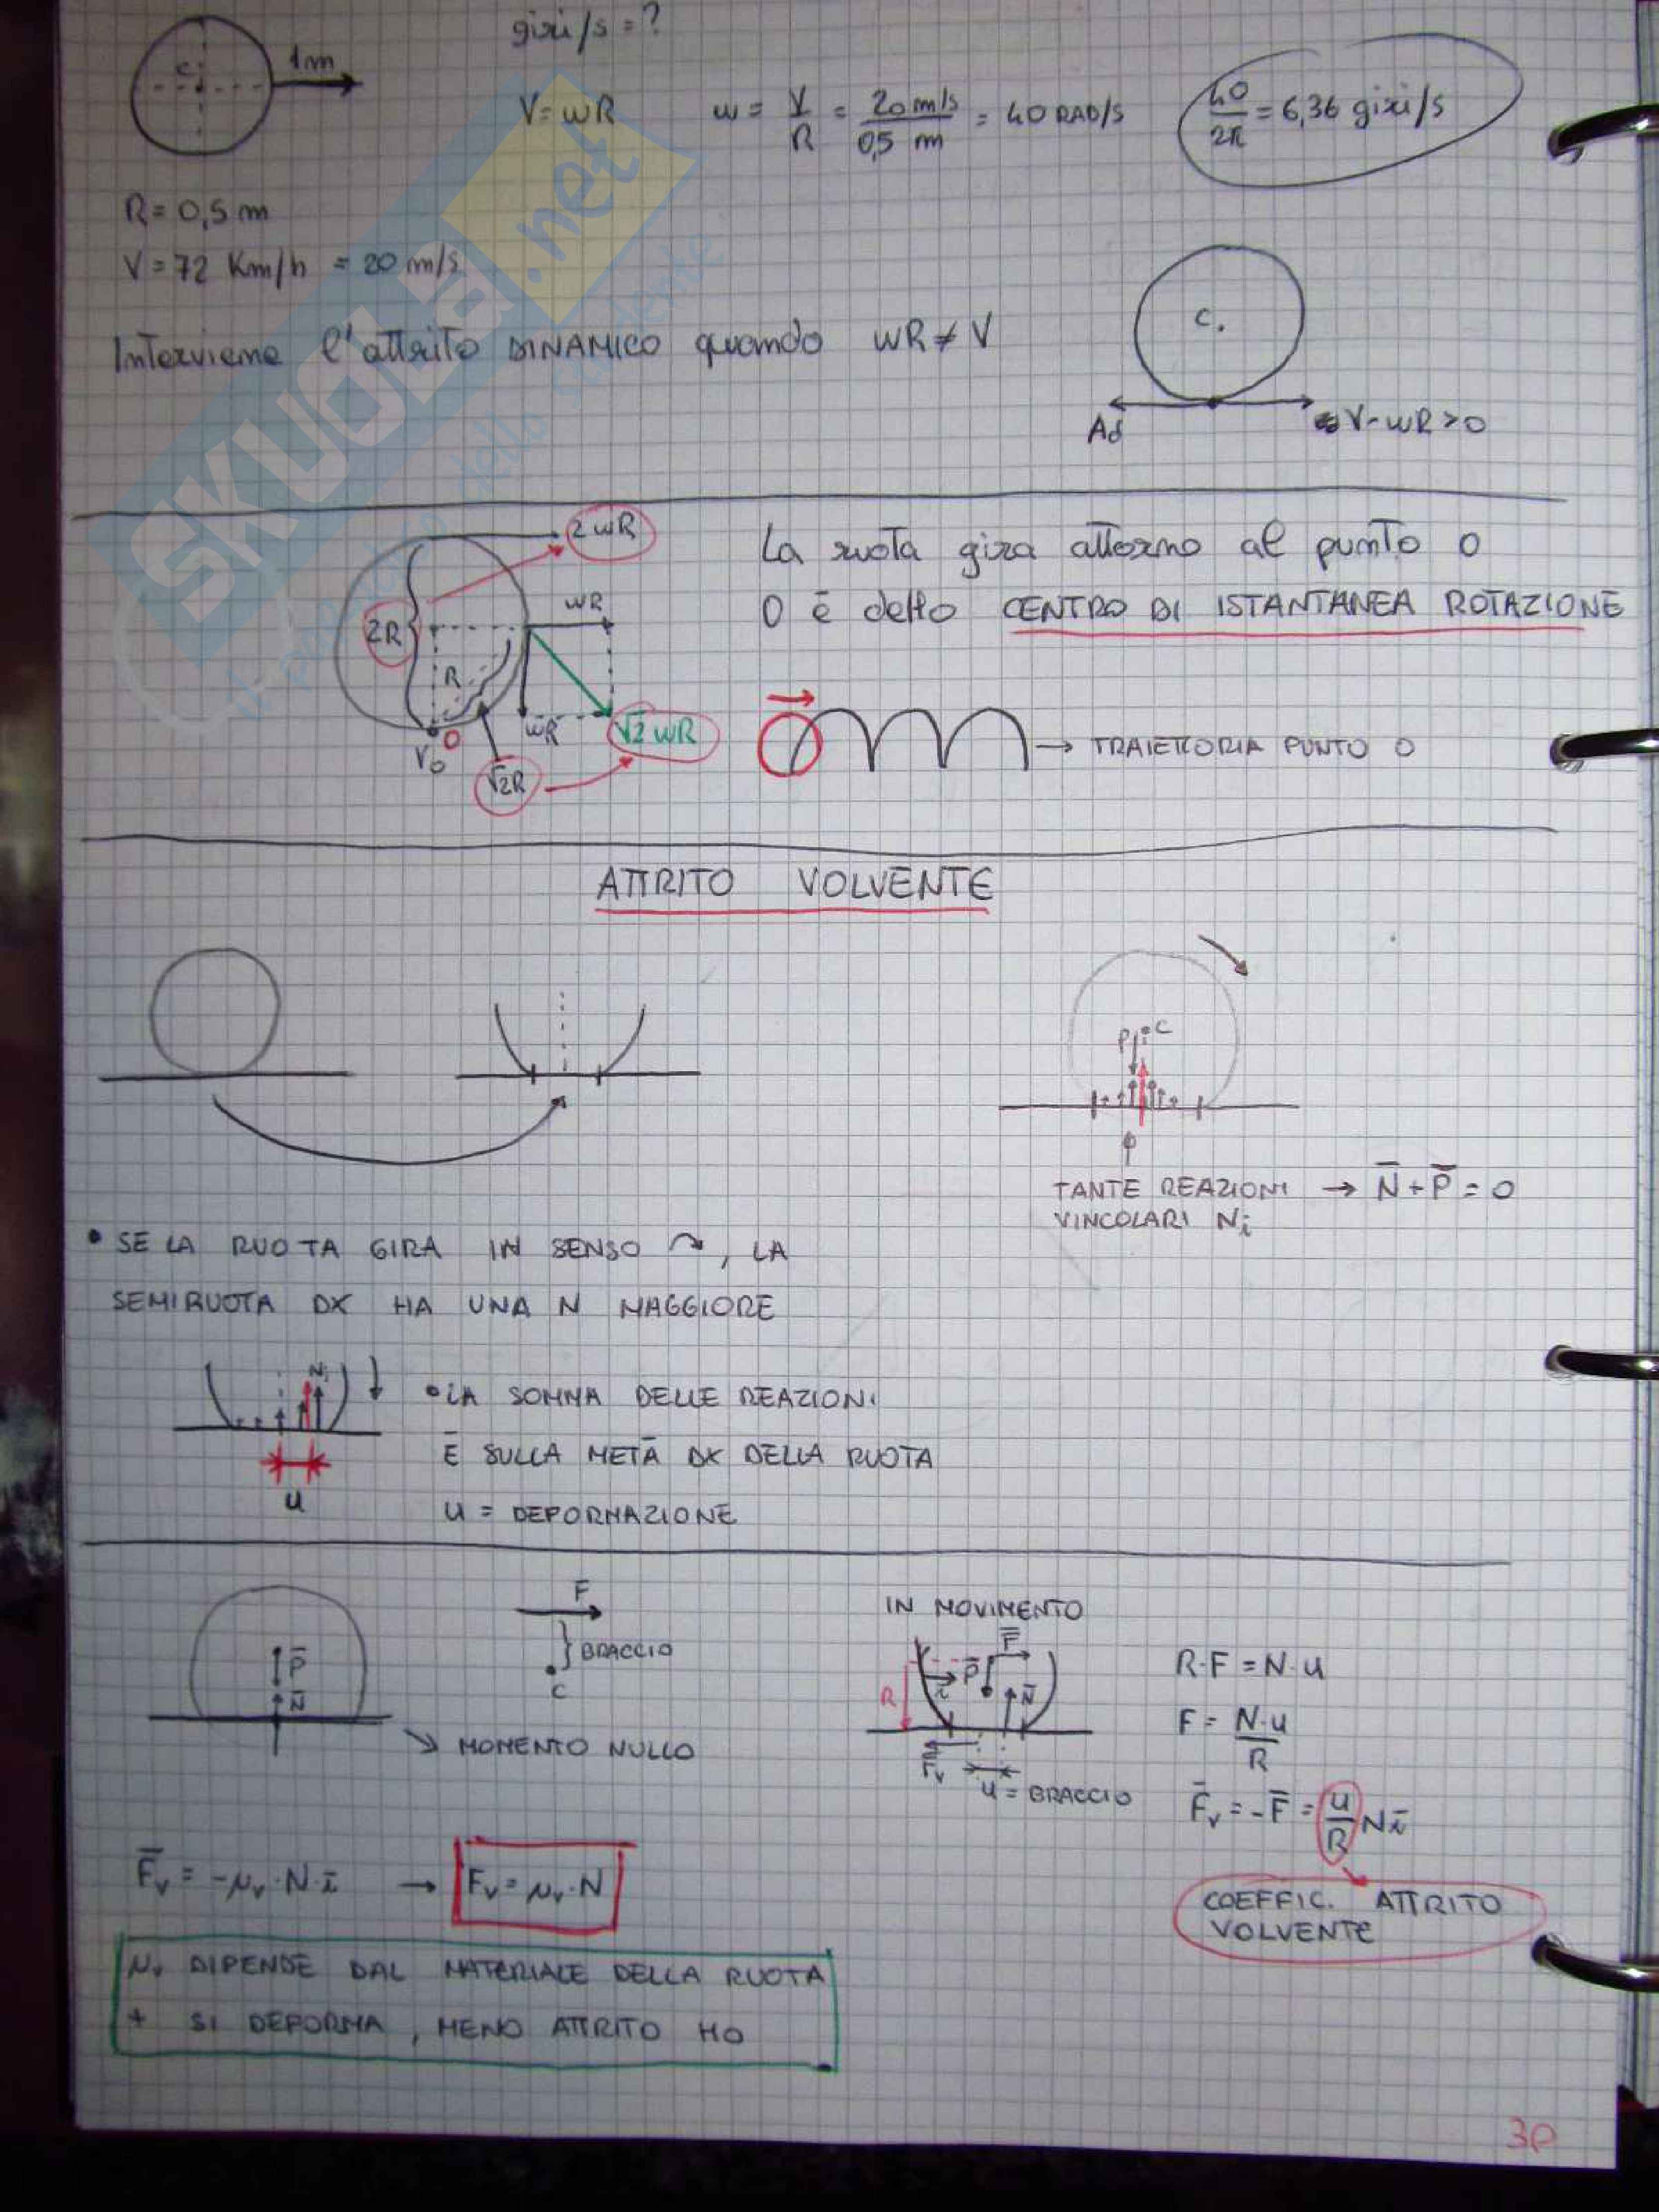 giri/s = ?
1m
C
V = ωR
ω = V/R = 20 m/s / 0,5 m = 40 RAD/S
40/2π = 6,36 giri/s
R = 0,5 m
V = 72 Km/h = 20 m/s
Interviene l'attrito DINAMICO quando ωR ≠ V
C.
Ad
V - ωR > 0
SKUOLA.net
il paradiso dello studente
2ωR
ωR
2R
R
ωR
√2 ωR
O
V₀
√2R
La ruota gira attorno al punto O
O è detto CENTRO DI ISTANTANEA ROTAZIONE
→ TRAIETTORIA PUNTO O
ATTRITO VOLVENTE
P
C
TANTE REAZIONI → N̄ + P̄ = 0
VINCOLARI Nᵢ
• SE LA RUOTA GIRA IN SENSO ↷, LA
SEMIRUOTA DX HA UNA N MAGGIORE
Nᵢ
• LA SOMMA DELLE REAZIONI
È SULLA METÀ DX DELLA RUOTA
u
u = DEFORMAZIONE
P̄
N̄
F
BRACCIO
C
MOMENTO NULLO
IN MOVIMENTO
F̄
P̄
R
ī
N̄
F̄ᵥ
u = BRACCIO
R·F = N·u
F = N·u/R
F̄ᵥ = -F̄ = u/R N ī
COEFFIC. ATTRITO
VOLVENTE
F̄ᵥ = -μᵥ·N·ī → Fᵥ = μᵥ·N
μᵥ DIPENDE DAL MATERIALE DELLA RUOTA
+ SI DEFORMA, MENO ATTRITO HO
3P